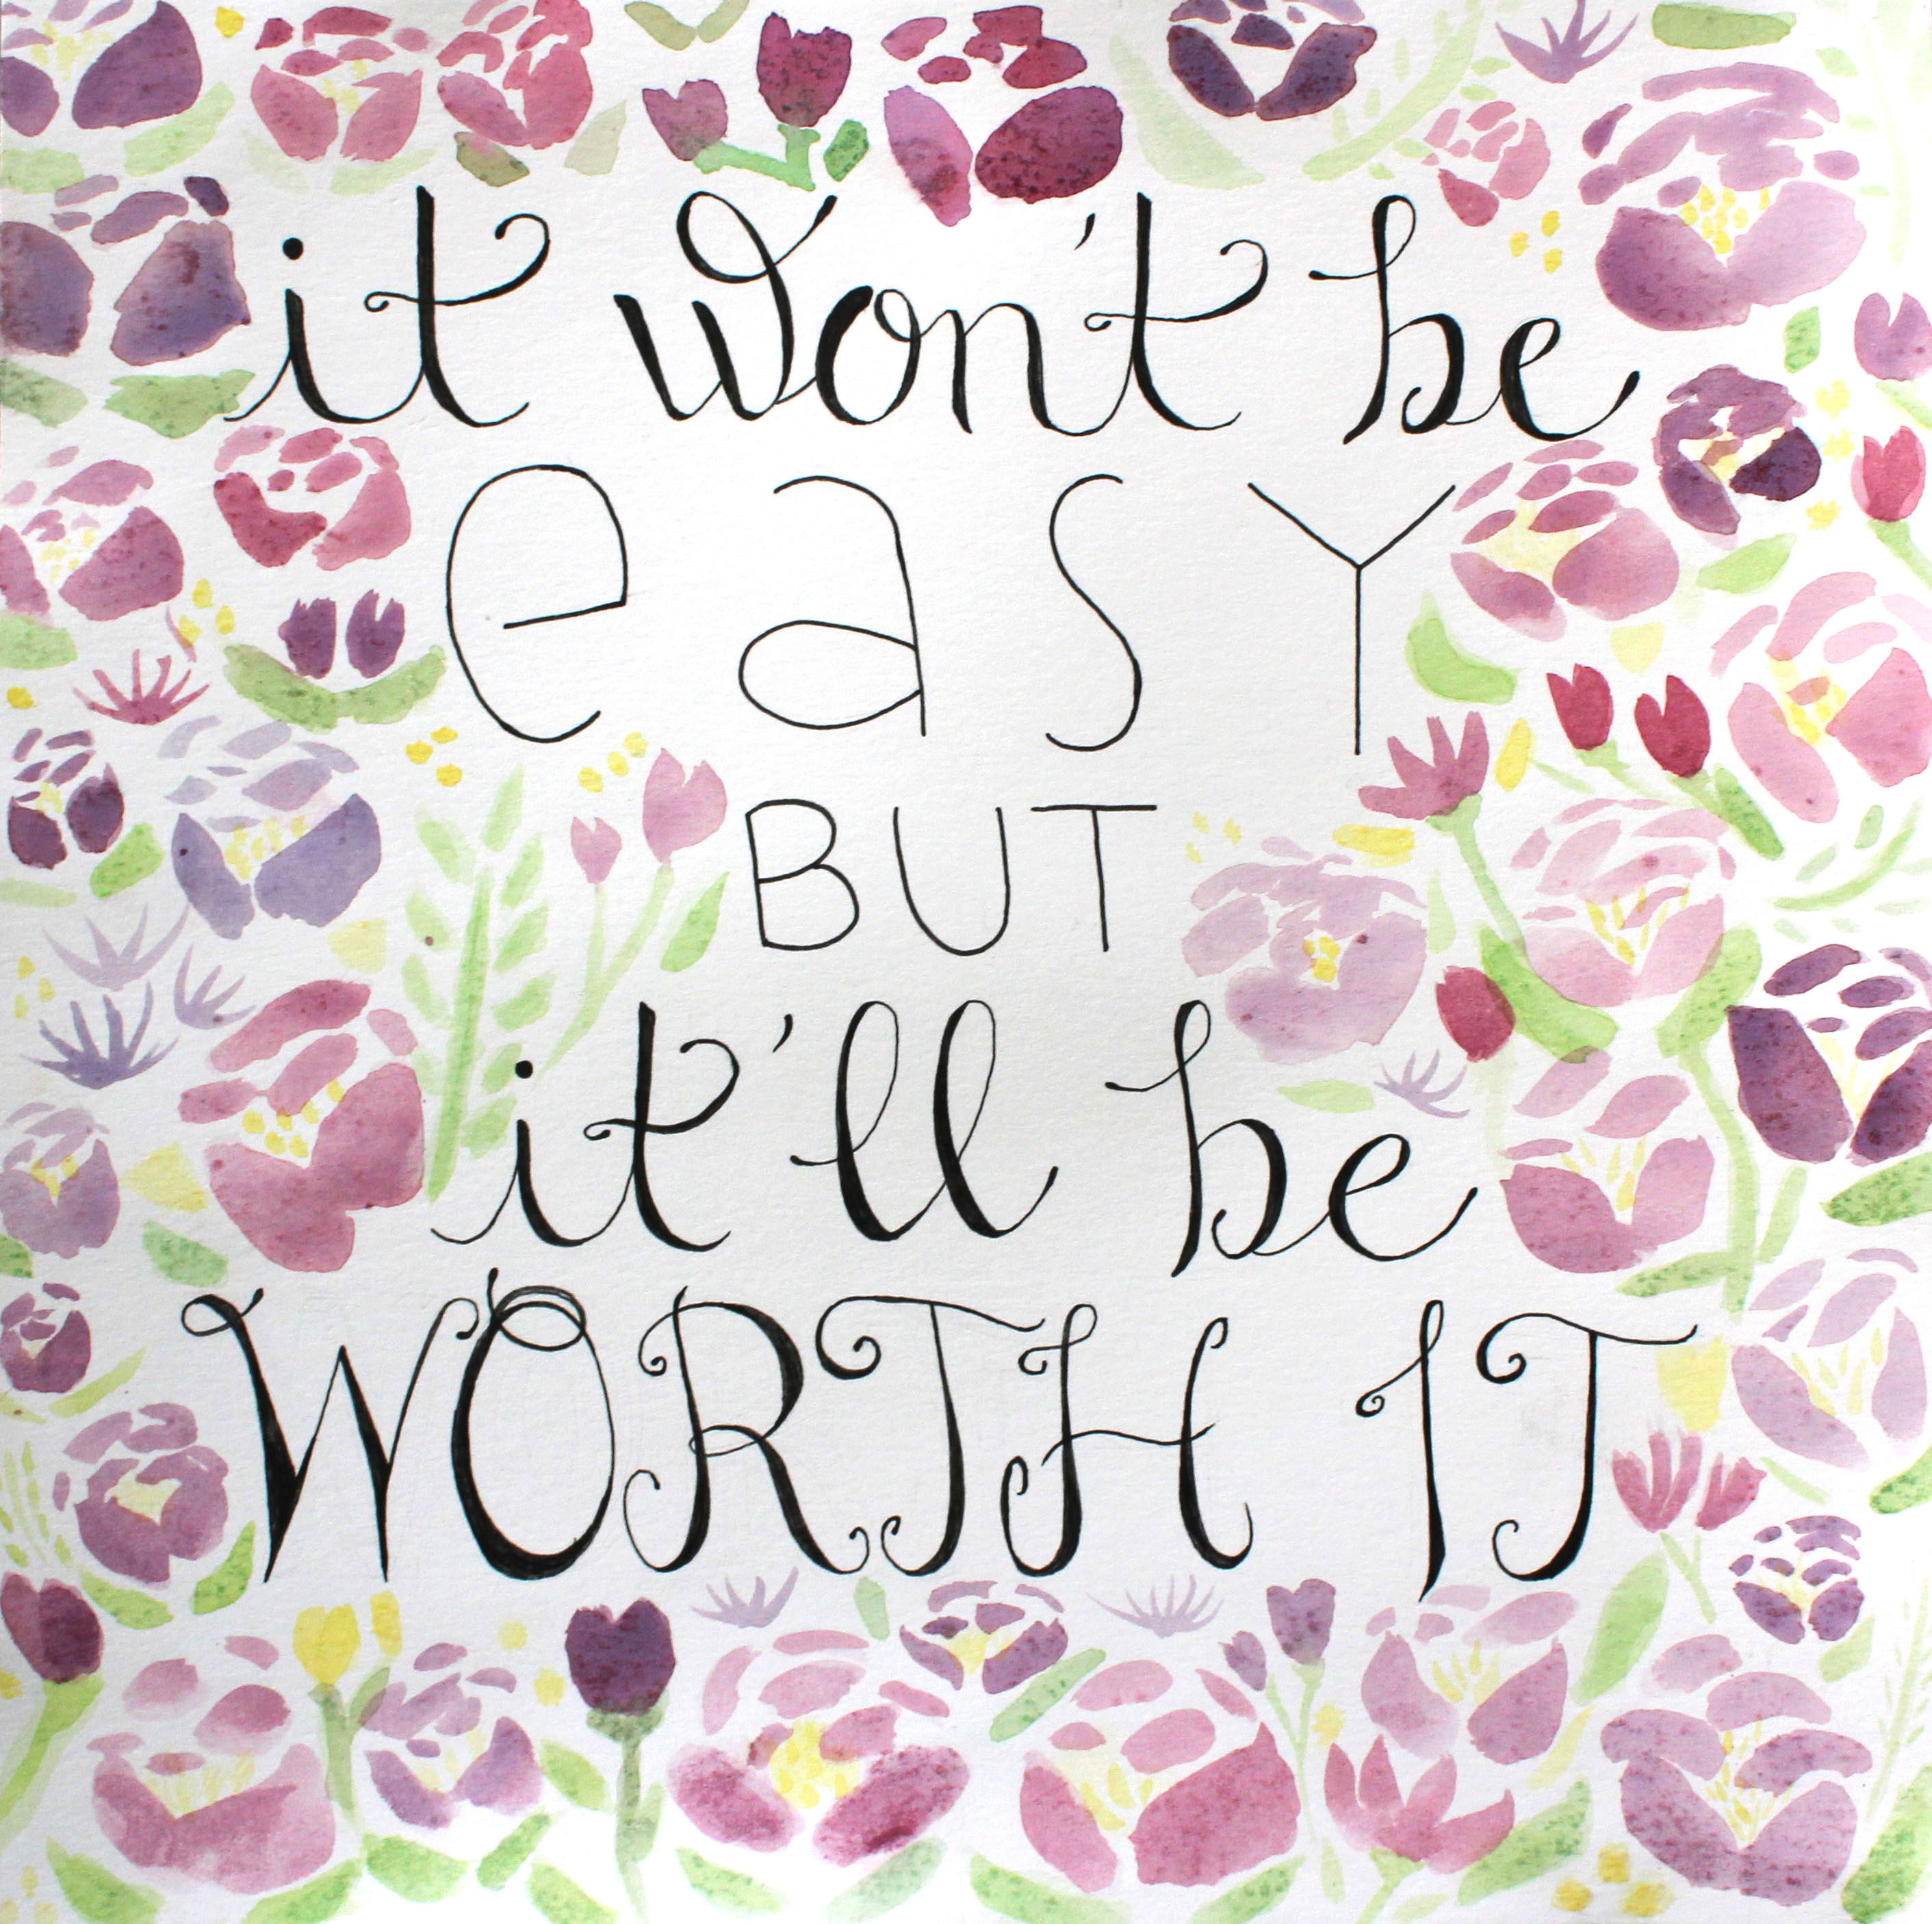 it won't be
easy
BUT
it'll be
WORTH IT